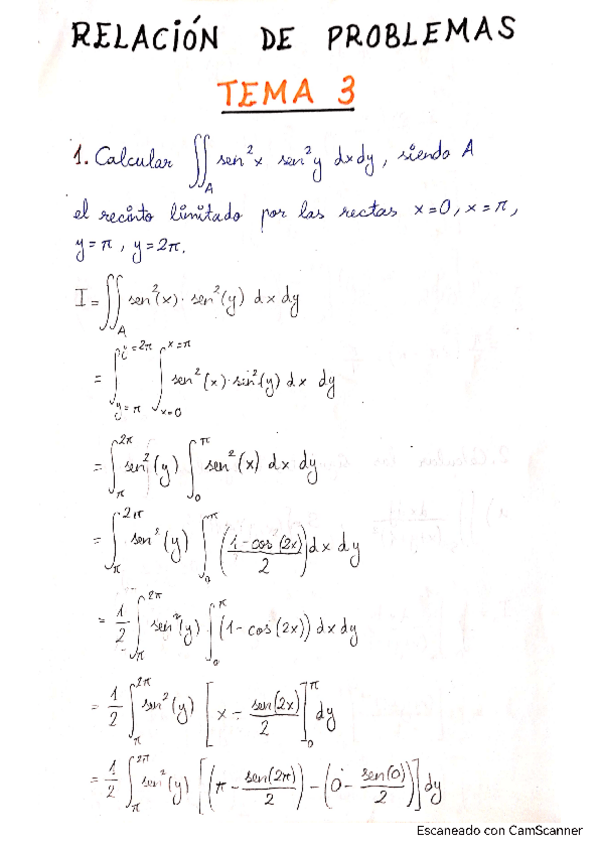 RELACIÓN DE PROBLEMAS
TEMA 3
1. Calcular ∬_A sen²x sen²y dxdy, siendo A
el recinto limitado por las rectas x=0, x=π,
y=π, y=2π.
I = ∬_A sen²(x)·sen²(y) dx dy
= ∫_{y=π}^{y=2π} ∫_{x=0}^{x=π} sen²(x)·sin²(y) dx dy
= ∫_π^{2π} sen²(y) ∫_0^π sen²(x) dx dy
= ∫_π^{2π} sen²(y) ∫_0^π (1-cos(2x)/2) dx dy
= 1/2 ∫_π^{2π} sen²(y) ∫_0^π (1-cos(2x)) dx dy
= 1/2 ∫_π^{2π} sen²(y) [x - sen(2x)/2]_0^π dy
= 1/2 ∫_π^{2π} sen²(y) [(π - sen(2π)/2) - (0 - sen(0)/2)] dy
Escaneado con CamScanner